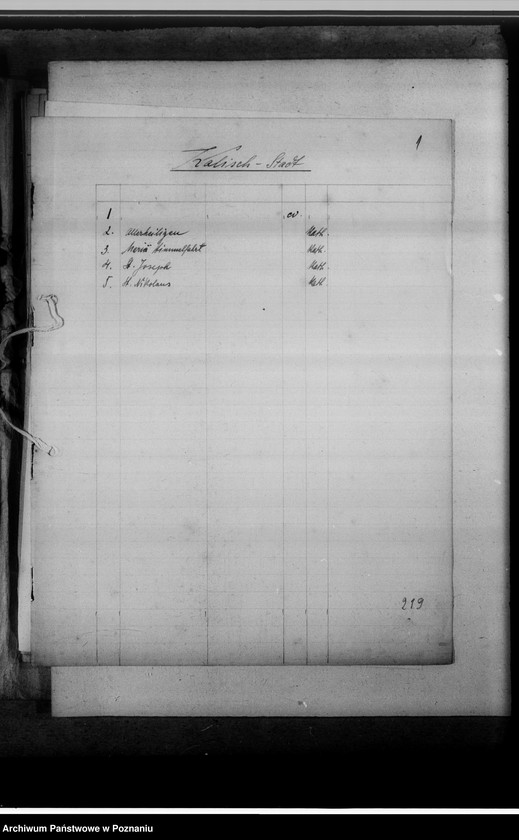 1
Kalisch-Stadt
1 ev.
2. Allerheiligen Kath.
3. Mariä Himmelfahrt Kath.
4. St. Joseph Kath.
5. St. Nikolaus Kath.
219
Archiwum Państwowe w Poznaniu